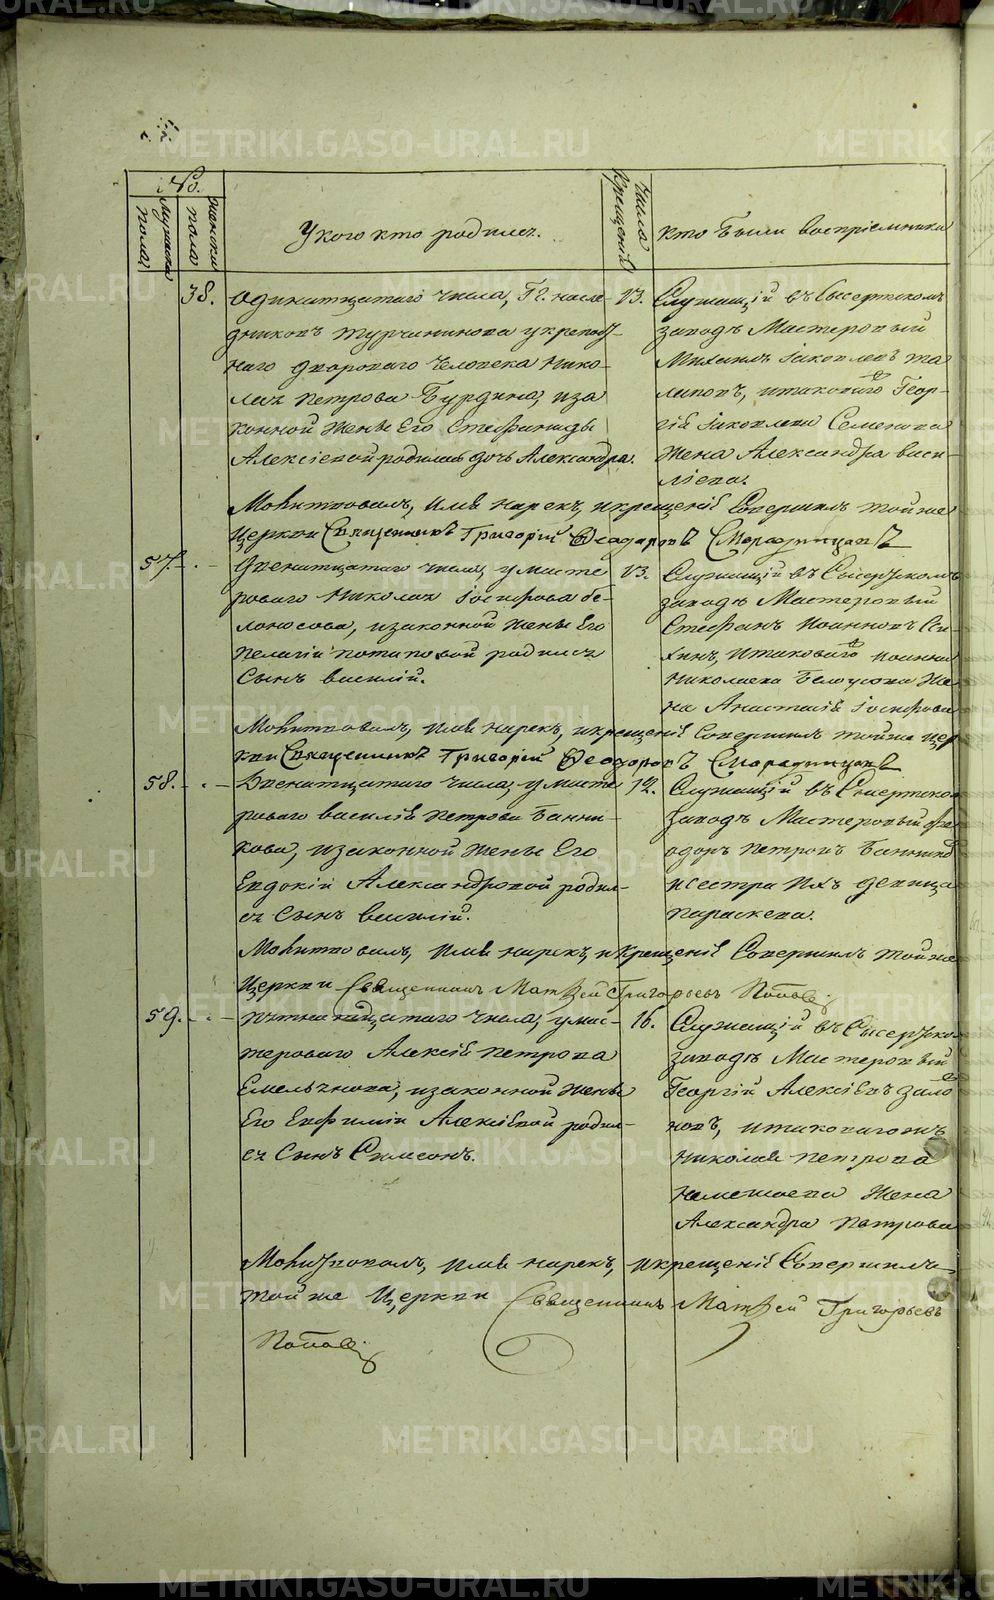 №.
Мужеска пола
Женска пола
У кого кто родился.
Числа Крещенія
Кто были воспріемники
38.
Одинатцатаго числа, Гг. насле-
дниковъ Турчанинова у крепос-
наго двороваго человека Нико-
лая Петрова Бурдина, иза
конной жены Его Стефаниды
Алексіевой родилась дочь Александра.
13.
Служащій въ Сысертскомъ
заводѣ Мастеровый
Михаилъ Іаковлевъ
и таковаго Геор-
гія Іаковлева Семенова
жена Александра Васи-
ліева.
Молитвовалъ, имя нарекъ, и крещеніе Совершилъ той же
Церкви Священникъ Григорій Феодоровъ Смородинцовъ
57.
Двенатцатаго числа, у масте
роваго Николая Іосифова бе-
лоносова, изаконной жены Его
Пелагіи Потаповой родился
Сынъ Василій.
13.
Служащій въ Сысертскомъ
заводѣ Мастеровый
Стефанъ Иоанновъ
и таковаго Иоанна
Николаева Белоусова же
на Анастасія Іосифова
Молитвовалъ, имя нарекъ, и крещеніе Совершилъ тойже цер
кви Священникъ Григорій Феодоровъ Смородинцовъ
58.
Двенатцатаго числа, у масте
роваго Василія Петрова Банни-
кова, изаконной жены Его
Евдокіи Александровой родил-
ся Сынъ Василій.
14.
Служащій въ Сысертском
заводѣ Мастеровый Фе
одоръ Петровъ Банников
и сестра ихъ девица
Параскева.
Молитвовалъ, имя нарекъ, и крещеніе Совершилъ той же
Церкви Священникъ Матѳей Григорьевъ Поповъ
59.
Пятнадцатаго числа, у мас-
тероваго Алексія Петрова
Емельянова, изаконной жены
Его Евфиміи Алексіевой родил-
ся Сынъ Симеонъ.
16.
Служащій въ Сысертско
заводѣ Мастеровый
Георгій Алексіевъ
и таковагожъ
Николая Петрова
жена
Александра Петрова
Молитвовалъ, имя нарекъ, и крещеніе Совершилъ
той же Церкви Священникъ Матѳей Григорьевъ
Поповъ
METRIKI.GASO-URAL.RU